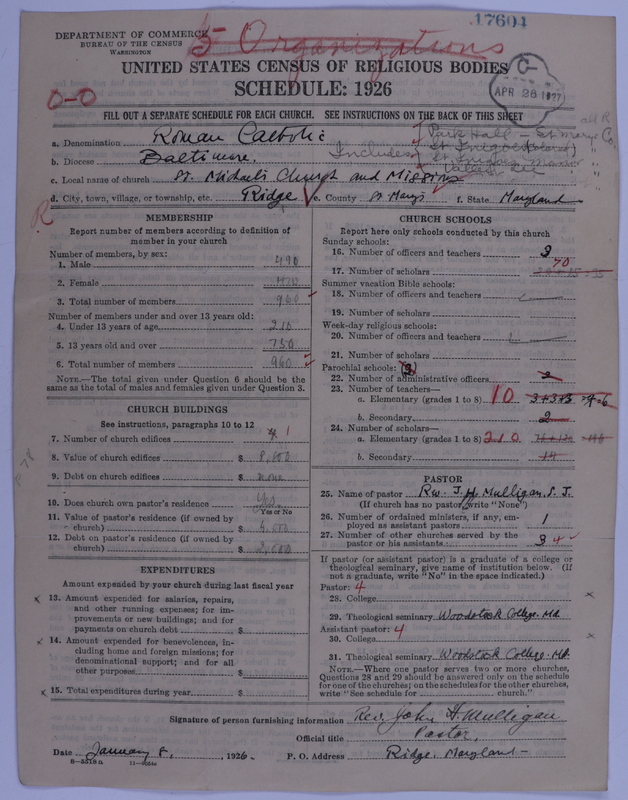 17604
DEPARTMENT OF COMMERCE
BUREAU OF THE CENSUS
WASHINGTON
5 Organizations
UNITED STATES CENSUS OF RELIGIOUS BODIES
SCHEDULE: 1926
C-
APR 28 1927
0-0
FILL OUT A SEPARATE SCHEDULE FOR EACH CHURCH. SEE INSTRUCTIONS ON THE BACK OF THIS SHEET
a. Denomination Roman Catholic
Park Hall - St Marys Co.
b. Diocese Baltimore. Includes
c. Local name of church St. Michaels Church and Missions
d. City, town, village, or township, etc. Ridge e. County St Marys f. State Maryland
R
MEMBERSHIP
Report number of members according to definition of
member in your church
Number of members, by sex:
1. Male 490
2. Female 470
3. Total number of members 960
Number of members under and over 13 years old:
4. Under 13 years of age 210
5. 13 years old and over 750
6. Total number of members 960
NOTE.—The total given under Question 6 should be the
same as the total of males and females given under Question 3.
CHURCH BUILDINGS
See instructions, paragraphs 10 to 12
7. Number of church edifices 4 1
8. Value of church edifices $ 8,000
9. Debt on church edifices $ none
10. Does church own pastor's residence Yes
Yes or No
11. Value of pastor's residence (if owned by
church) $ 4,000
12. Debt on pastor's residence (if owned by
church) $ 2,000
EXPENDITURES
Amount expended by your church during last fiscal year
13. Amount expended for salaries, repairs,
and other running expenses; for im-
provements or new buildings; and for
payments on church debt $
14. Amount expended for benevolences, in-
cluding home and foreign missions; for
denominational support; and for all
other purposes $
15. Total expenditures during year $
CHURCH SCHOOLS
Report here only schools conducted by this church
Sunday schools:
16. Number of officers and teachers 3
17. Number of scholars 70
Summer vacation Bible schools:
18. Number of officers and teachers
19. Number of scholars
Week-day religious schools:
20. Number of officers and teachers
21. Number of scholars
Parochial schools: 3
22. Number of administrative officers 2
23. Number of teachers—
a. Elementary (grades 1 to 8) 10 3+3+3
b. Secondary 2
24. Number of scholars—
a. Elementary (grades 1 to 8) 210
b. Secondary 14
PASTOR
25. Name of pastor Rev. J. H. Mulligan, S. J.
(If church has no pastor, write "None")
26. Number of ordained ministers, if any, em-
ployed as assistant pastors 1
27. Number of other churches served by the
pastor or his assistants 3 4
If pastor (or assistant pastor) is a graduate of a college or
theological seminary, give name of institution below. (If
not a graduate, write "No" in the space indicated.)
Pastor: 4
28. College
29. Theological seminary Woodstock College. Md.
Assistant pastor: 4
30. College
31. Theological seminary Woodstock College. Md.
NOTE.—Where one pastor serves two or more churches,
Questions 28 and 29 should be answered only on the schedule
for one of the churches; on the schedules for the other churches,
write "See schedule for church."
Signature of person furnishing information Rev. John H. Mulligan
Official title Pastor,
Date January 8, 1926. P. O. Address Ridge, Maryland